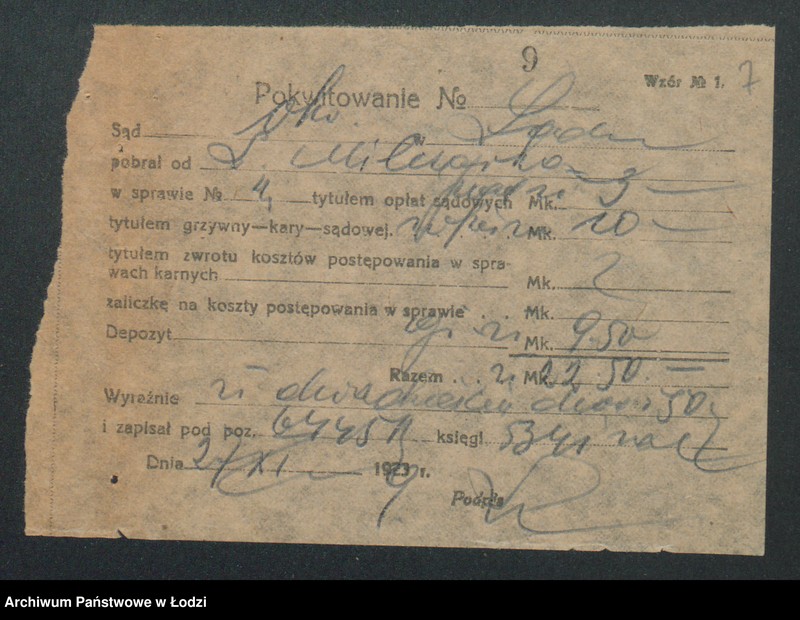 9
Wzór № 1. 7
Pokwitowanie №
Sąd Okr. w Łodzi
pobrał od
w sprawie № 4, tytułem opłat sądowych Mk. 3 —
tytułem grzywny—kary—sądowej Mk. 10 —
tytułem zwrotu kosztów postępowania w spra-
wach karnych Mk.
zaliczkę na koszty postępowania w sprawie . . Mk.
Depozyt Mk. 9.50
Razem . . zł Mk. 22.50 —
Wyraźnie zł dwadzieścia dwa 50
i zapisał pod poz. księgi
Dnia 27/XI 1923 r.
Podpis
Archiwum Państwowe w Łodzi